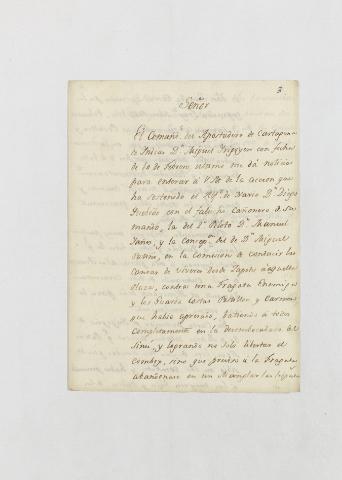 3.
Señor
El Comand.te del Apostadero de Cartagena
de Indias D.n Miguel Irigoyen con fecha
de 10 de Febrero ultimo me da noticia
para enterar à V.M. de la accion que
ha sostenido el Alf.z de Navio D.n Diego
con el falucho Cañonero de su
mando, la del 2.o Piloto D.n Manuel
y la del de D.n Miguel
en la Comision de conducir las
canoas de viveres desde Zapote à aquella
plaza, contra una Fragata Enemiga
y las Guarda Costas
que habia apresado, batiendo à todos
completamente en la Desembocadura del
Sinú, y logrando no solo libertar el
comboy, sino que precisó à la Fragata
abandonase en un las